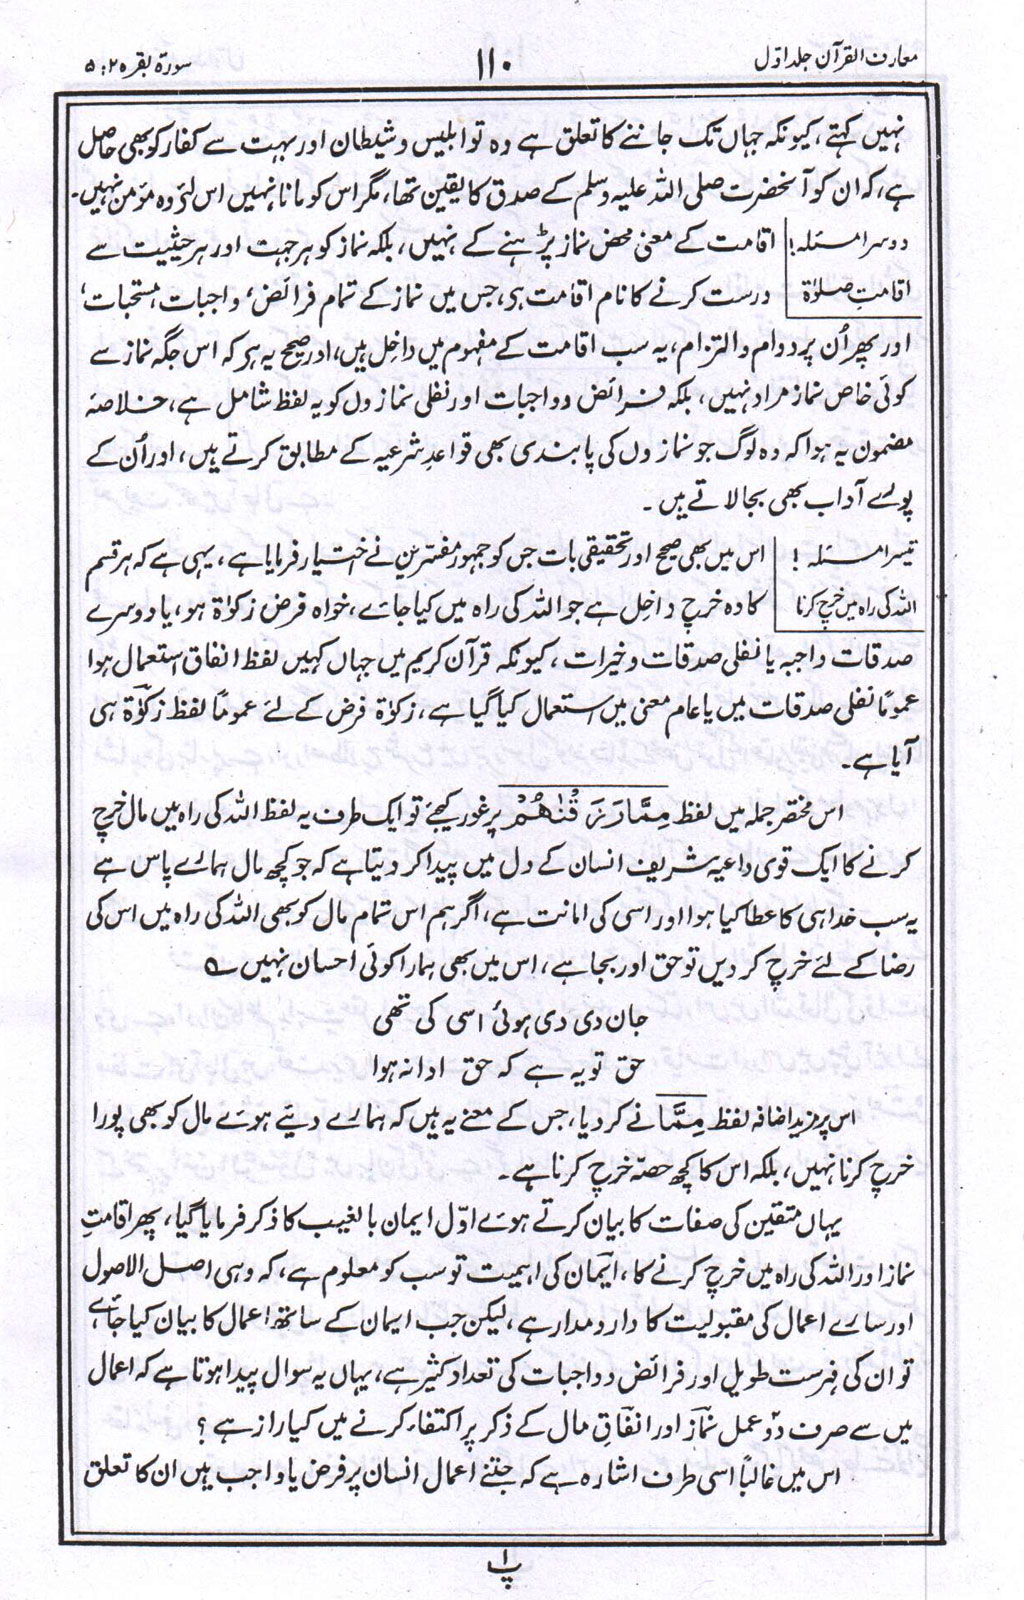 معارف القرآن جلد اوّل
۱۱۰
سورۃ بقرہ ۲ : ۵
نہیں کہتے، کیونکہ جہاں تک جاننے کا تعلق ہے وہ تو ابلیس و شیطان اور بہت سے کفار کو بھی حاصل
ہے، کہ ان کو آنحضرت صلی اللہ علیہ وسلم کے صدق کا یقین تھا، مگر اس کو مانا نہیں اس لئے وہ مؤمن نہیں۔
دوسرا مسئلہ! اقامت کے معنی محض نماز پڑھنے کے نہیں، بلکہ نماز کو ہر جہت اور ہر حیثیت سے
اقامتِ صلوٰۃ درست کرنے کا نام اقامت ہی، جس میں نماز کے تمام فرائض، واجبات، مستحبات،
اور پھر اُن پر دوام و التزام، یہ سب اقامت کے مفہوم میں داخل ہیں، اور صحیح یہ ہی کہ اس جگہ نماز سے
کوئی خاص نماز مراد نہیں، بلکہ فرائض و واجبات اور نفلی نمازوں کو یہ لفظ شامل ہے، خلاصہ
مضمون یہ ہوا کہ وہ لوگ جو نمازوں کی پابندی بھی قواعدِ شرعیہ کے مطابق کرتے ہیں، اور اُن کے
پورے آداب بھی بجا لاتے ہیں۔
تیسرا مسئلہ! اس میں بھی صحیح اور تحقیقی بات جس کو جمہور مفسرین نے اختیار فرمایا ہے، یہی ہے کہ ہر قسم
اللہ کی راہ میں خرچ کرنا کا وہ خرچ داخل ہے جو اللہ کی راہ میں کیا جائے، خواہ فرض زکوٰۃ ہو، یا دوسرے
صدقات واجبہ یا نفلی صدقات و خیرات، کیونکہ قرآن کریم میں جہاں کہیں لفظ انفاق استعمال ہوا
عموماً نفلی صدقات میں یا عام معنی میں استعمال کیا گیا ہے، زکوٰۃ فرض کے لئے عموماً لفظ زکوٰۃ ہی
آیا ہے۔
اس مختصر جملہ میں لفظ مِمَّا رَزَقْنٰهُمْ پر غور کیجئے تو ایک طرف یہ لفظ اللہ کی راہ میں مال خرچ
کرنے کا ایک قوی داعیہ شریف انسان کے دل میں پیدا کر دیتا ہے کہ جو کچھ مال ہمارے پاس ہے
یہ سب خدا ہی کا عطا کیا ہوا اور اسی کی امانت ہے، اگر ہم اس تمام مال کو بھی اللہ کی راہ میں اس کی
رضا کے لئے خرچ کر دیں تو حق اور بجا ہے، اس میں بھی ہمارا کوئی احسان نہیں ؎
جان دی دی ہوئی اسی کی تھی
حق تو یہ ہے کہ حق ادا نہ ہوا
اس پر مزید اضافہ لفظ مِمَّا نے کر دیا، جس کے معنے یہ ہیں کہ ہمارے دیئے ہوئے مال کو بھی پورا
خرچ کرنا نہیں، بلکہ اس کا کچھ حصّہ خرچ کرنا ہے۔
یہاں متقین کی صفات کا بیان کرتے ہوئے اوّل ایمان بالغیب کا ذکر فرمایا گیا، پھر اقامتِ
نماز اور اللہ کی راہ میں خرچ کرنے کا، ایمان کی اہمیت تو سب کو معلوم ہے، کہ وہی اصل الاصول
اور سارے اعمال کی مقبولیت کا دار و مدار ہے، لیکن جب ایمان کے ساتھ اعمال کا بیان کیا جائے
تو ان کی فہرست طویل اور فرائض و واجبات کی تعداد کثیر ہے، یہاں یہ سوال پیدا ہوتا ہے کہ اعمال
میں سے صرف دو عمل نماز اور انفاقِ مال کے ذکر پر اکتفاء کرنے میں کیا راز ہے؟
اس میں غالباً اسی طرف اشارہ ہے کہ جتنے اعمال انسان پر فرض یا واجب ہیں ان کا تعلق
پ۱